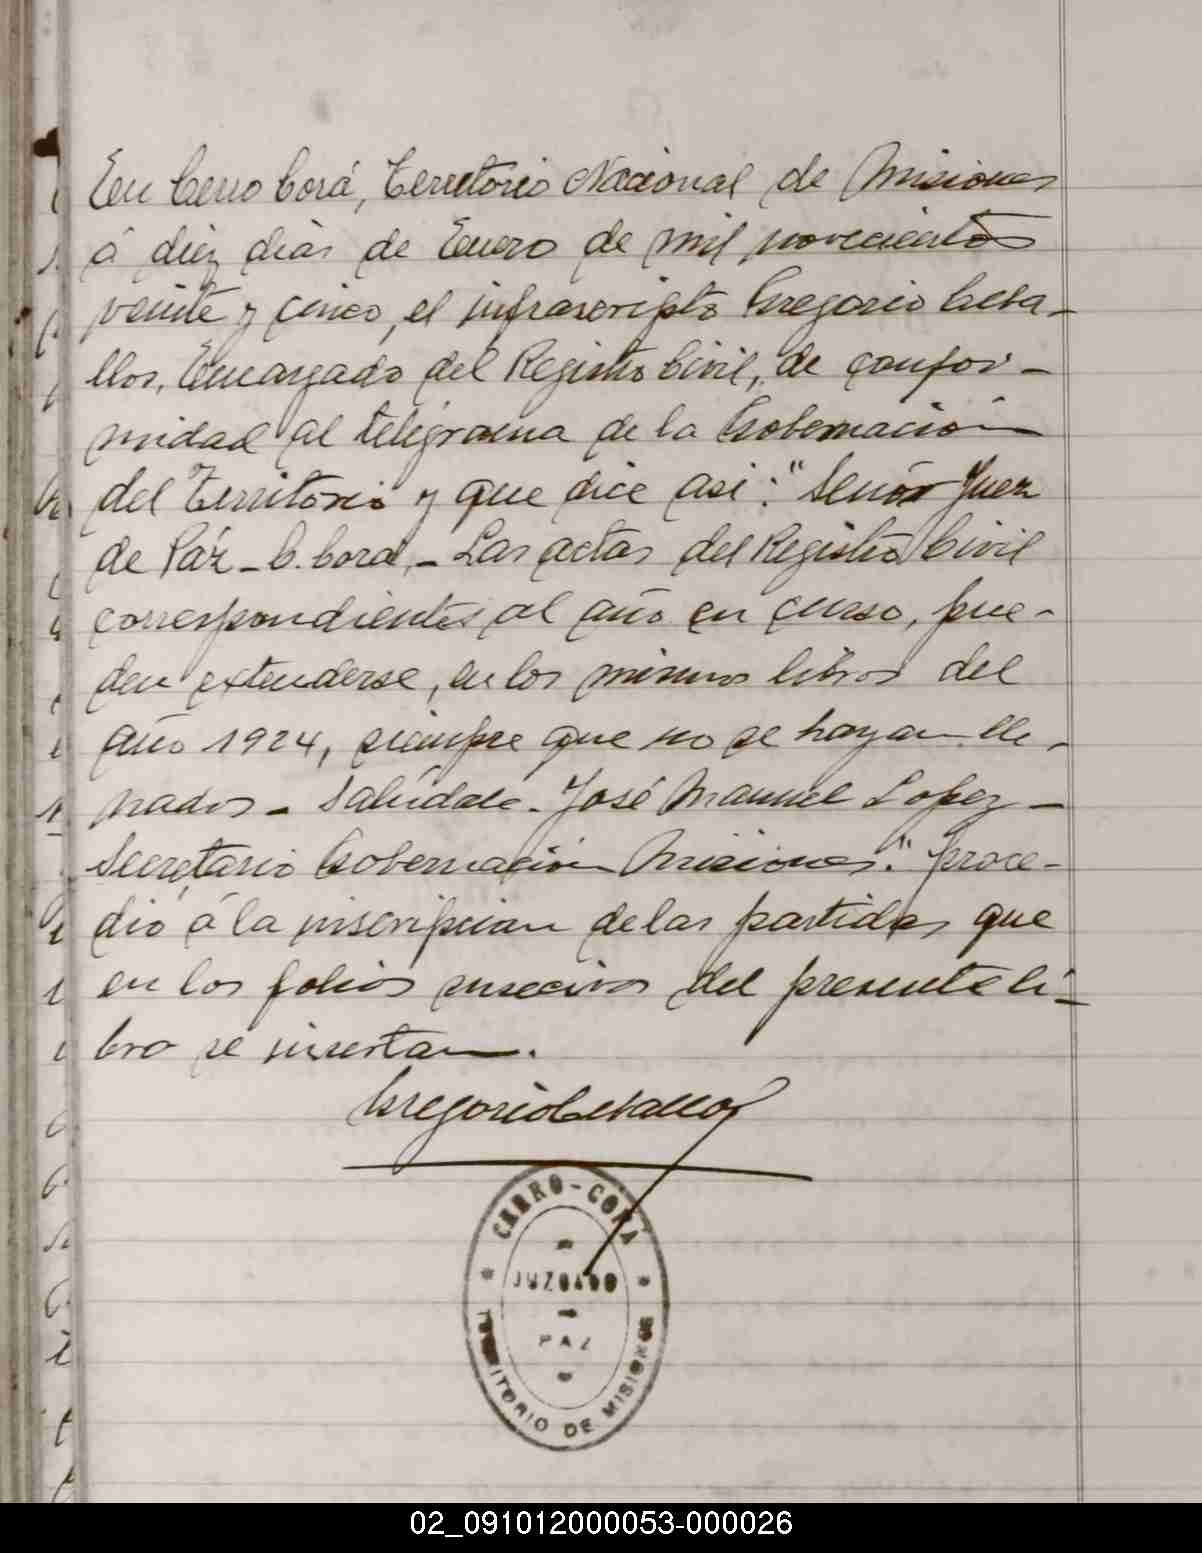 En Cerro Corá, Territorio Nacional de Misiones
á diez dias de Enero de mil novecientos
veinte y cinco, el infrascripto Gregorio Ceba-
llos, Encargado del Registro Civil, de confor-
midad al telégrama de la Gobernación
del Territorio y que dice asi: "Señor Juez
de Páz - C. Corá, - Las actas del Registro Civil
correspondientes al año en curso, pue-
den extenderse, en los mismos libros del
año 1924, siempre que no se hayan lle-
nados - Salúdale - José Manuel Lopez -
Secretario Gobernación Misiones." proce-
dió á la inscripcian de las partidas que
en los folios sucecivos del presente li-
bro se insertan.
Gregorio Ceballos
CERRO-CORÁ
JUZGADO
PAZ
TERRITORIO DE MISIONES
02_091012000053-000026